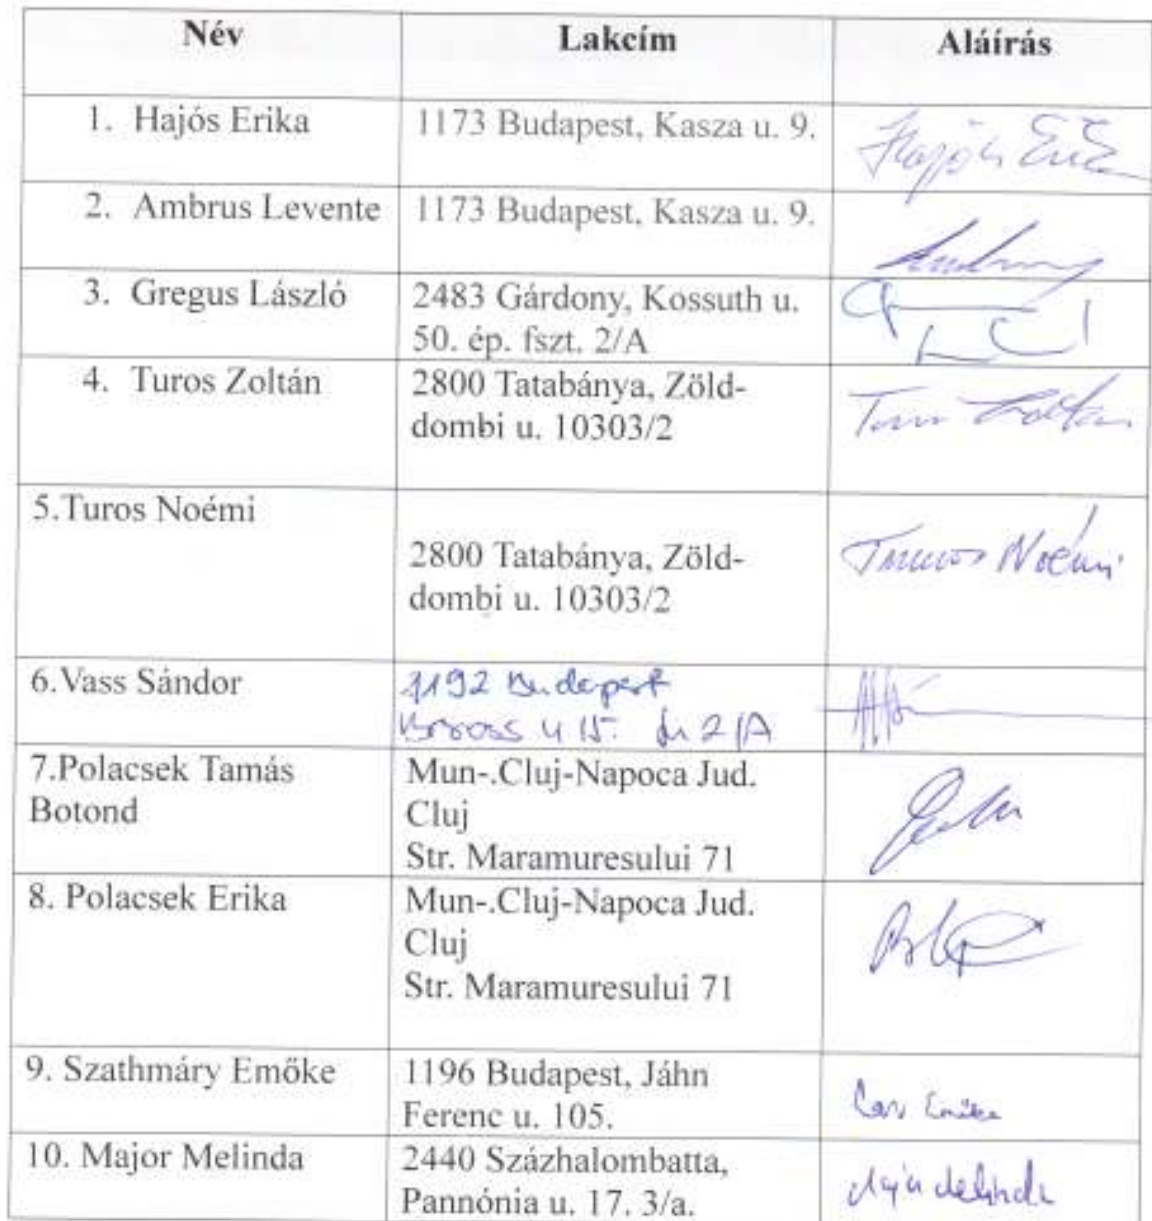 Név Lakcím Aláírás
1. Hajós Erika 1173 Budapest, Kasza u. 9. Hajós Erika
2. Ambrus Levente 1173 Budapest, Kasza u. 9.
3. Gregus László 2483 Gárdony, Kossuth u.
50. ép. fszt. 2/A
4. Turos Zoltán 2800 Tatabánya, Zöld-
dombi u. 10303/2
Turos Zoltán
5.Turos Noémi
2800 Tatabánya, Zöld-
dombi u. 10303/2
Turos Noémi
6.Vass Sándor 1192 Budapest
u 15. 2/A
7.Polacsek Tamás
Botond
Mun-.Cluj-Napoca Jud.
Cluj
Str. Maramuresului 71
8. Polacsek Erika Mun-.Cluj-Napoca Jud.
Cluj
Str. Maramuresului 71
9. Szathmáry Emőke 1196 Budapest, Jáhn
Ferenc u. 105.
Emőke
10. Major Melinda 2440 Százhalombatta,
Pannónia u. 17. 3/a.
Major Melinda